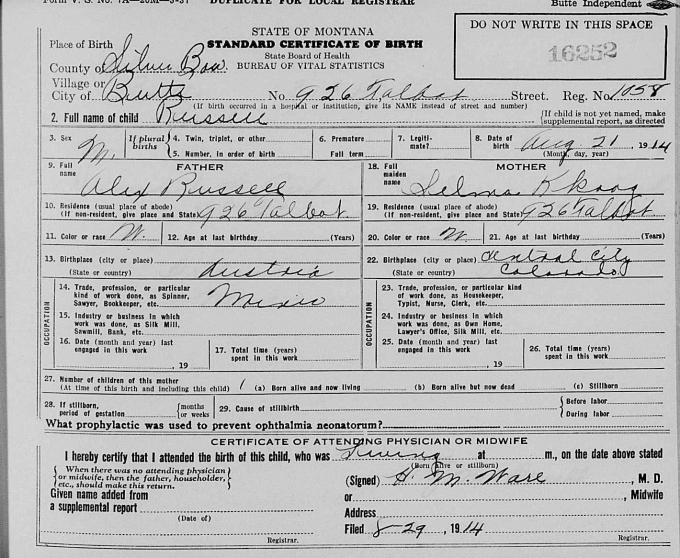 Form V. S. No. 7A—20M—3-37 DUPLICATE FOR LOCAL REGISTRAR Butte Independent
STATE OF MONTANA
DO NOT WRITE IN THIS SPACE
16252
Place of Birth STANDARD CERTIFICATE OF BIRTH
County of Silver Bow State Board of Health
BUREAU OF VITAL STATISTICS
Village or
City of Butte No. 926 Talbot Street. Reg. No. 1058
(If birth occurred in a hospital or institution, give its NAME instead of street and number)
2. Full name of child Russell {If child is not yet named, make supplemental report, as directed
3. Sex M. If plural births { 4. Twin, triplet, or other 5. Number, in order of birth 6. Premature Full term 7. Legiti-mate? 8. Date of birth Aug 21, 1914
(Month, day, year)
FATHER MOTHER
9. Full name Alix Russell 18. Full maiden name Selma
10. Residence (usual place of abode) (If non-resident, give place and State) 926 Talbot 19. Residence (usual place of abode) (If non-resident, give place and State) 926 Talbot
11. Color or race W. 12. Age at last birthday (Years) 20. Color or race W 21. Age at last birthday (Years)
13. Birthplace (city or place) (State or country) Austria 22. Birthplace (city or place) Central City (State or country) Colorado
OCCUPATION
14. Trade, profession, or particular kind of work done, as Spinner, Sawyer, Bookkeeper, etc. 23. Trade, profession, or particular kind of work done, as Housekeeper, Typist, Nurse, Clerk, etc.
15. Industry or business in which work was done, as Silk Mill, Sawmill, Bank, etc. 24. Industry or business in which work was done, as Own Home, Lawyer's Office, Silk Mill, etc.
16. Date (month and year) last engaged in this work , 19 17. Total time (years) spent in this work 25. Date (month and year) last engaged in this work , 19 26. Total time (years) spent in this work
27. Number of children of this mother
(At time of this birth and including this child) 1 (a) Born alive and now living (b) Born alive but now dead (c) Stillborn
28. If stillborn, period of gestation {months or weeks 29. Cause of stillbirth {Before labor During labor
What prophylactic was used to prevent ophthalmia neonatorum?
CERTIFICATE OF ATTENDING PHYSICIAN OR MIDWIFE
I hereby certify that I attended the birth of this child, who was living at m., on the date above stated
(Born alive or stillborn)
{When there was no attending physician or midwife, then the father, householder, etc., should make this return.} (Signed) H. M. Ware, M. D.
or , Midwife
Given name added from
a supplemental report Address
(Date of)
Filed 8-29, 1914
Registrar. Registrar.